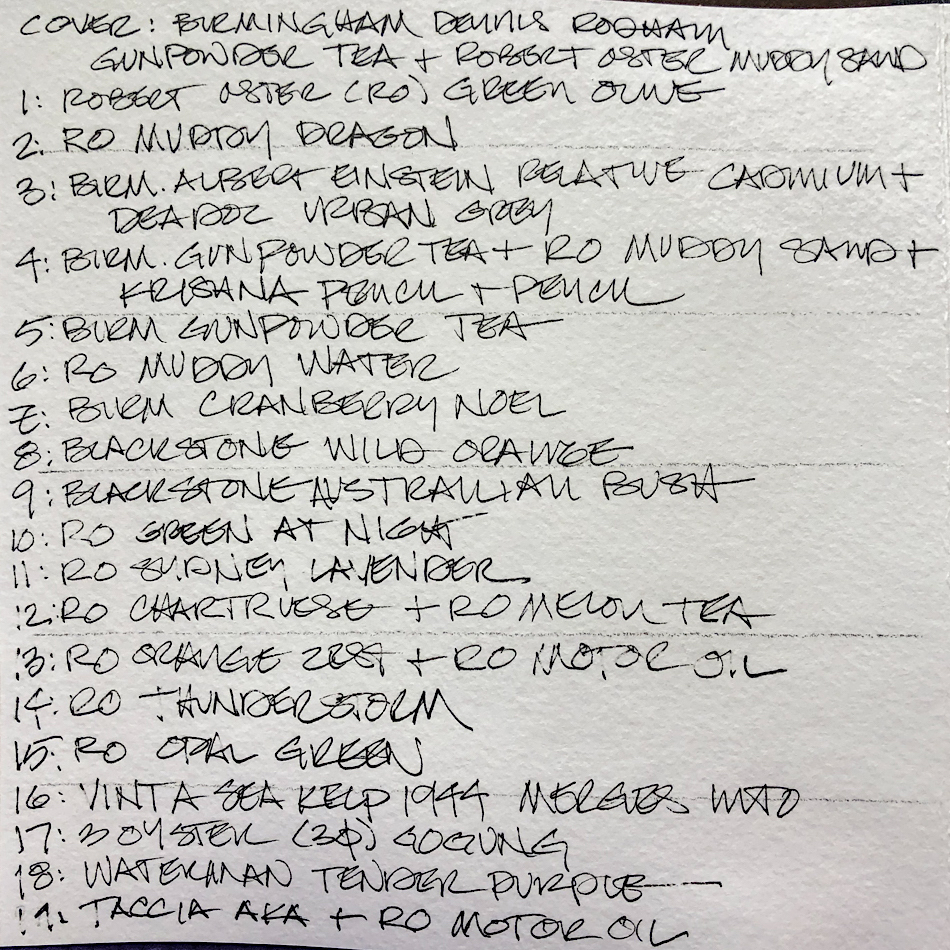 COVER: BIRMINGHAM DENNIS RODHAM
GUNPOWDER TEA + ROBERT OSTER MUDDY SAND
1: ROBERT OSTER (RO) GREEN OLIVE
2: RO MUDDY DRAGON
3: BIRM. ALBERT EINSTEIN RELATIVE CADMIUM +
DE ADOZ URBAN GREY
4: BIRM. GUNPOWDER TEA + RO MUDDY SAND +
KRISHNA PENCIL + PENCIL
5: BIRM GUNPOWDER TEA
6: RO MUDDY WATER
7: BIRM CRANBERRY NOEL
8: BLACKSTONE WILD ORANGE
9: BLACKSTONE AUSTRALIAN BUSH
10: RO GREEN AT NIGHT
11: RO SYDNEY LAVENDER
12: RO CHARTRUESE + RO MELON TEA
13: RO ORANGE ZEST + RO MOTOR OIL
14: RO THUNDERSTORM
15: RO OPAL GREEN
16: VINTA SEA KELP 1944 MERGES INTO
17: 3 OYSTER (3Ø) GOGUNG
18: WATERMAN TENDER PURPLE
19: TACCIA AKA + RO MOTOR OIL